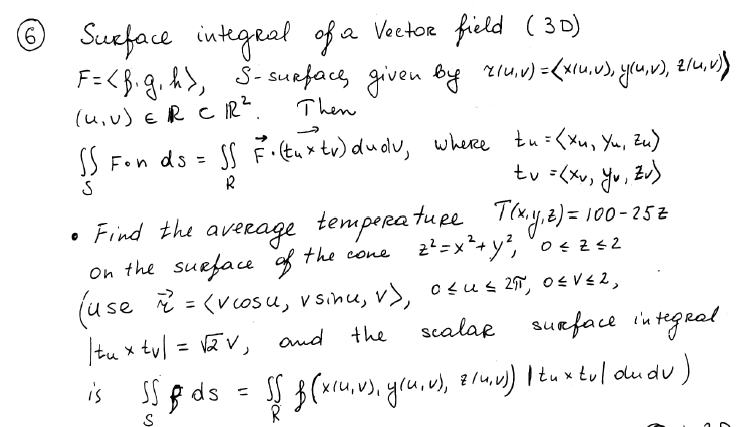 ⑥ Surface integral of a Vector field (3D)
F=<f,g,h>, S-surface, given by r(u,v)=<x(u,v), y(u,v), z(u,v)>
(u,v) ∈ R ⊂ ℝ². Then
∬_S F∘n ds = ∬_R F⃗·(tu×tv)⃗ dudv, where tu=<xu, yu, zu>
tv=<xv, yv, zv>
• Find the average temperature T(x,y,z)=100-25z
on the surface of the cone z²=x²+y², 0≤z≤2
(use r⃗ = <vcosu, vsinu, v>, 0≤u≤2π, 0≤v≤2,
|tu×tv| = √2 v, and the scalar surface integral
is ∬_S f ds = ∬_R f(x(u,v), y(u,v), z(u,v)) |tu×tv| dudv)